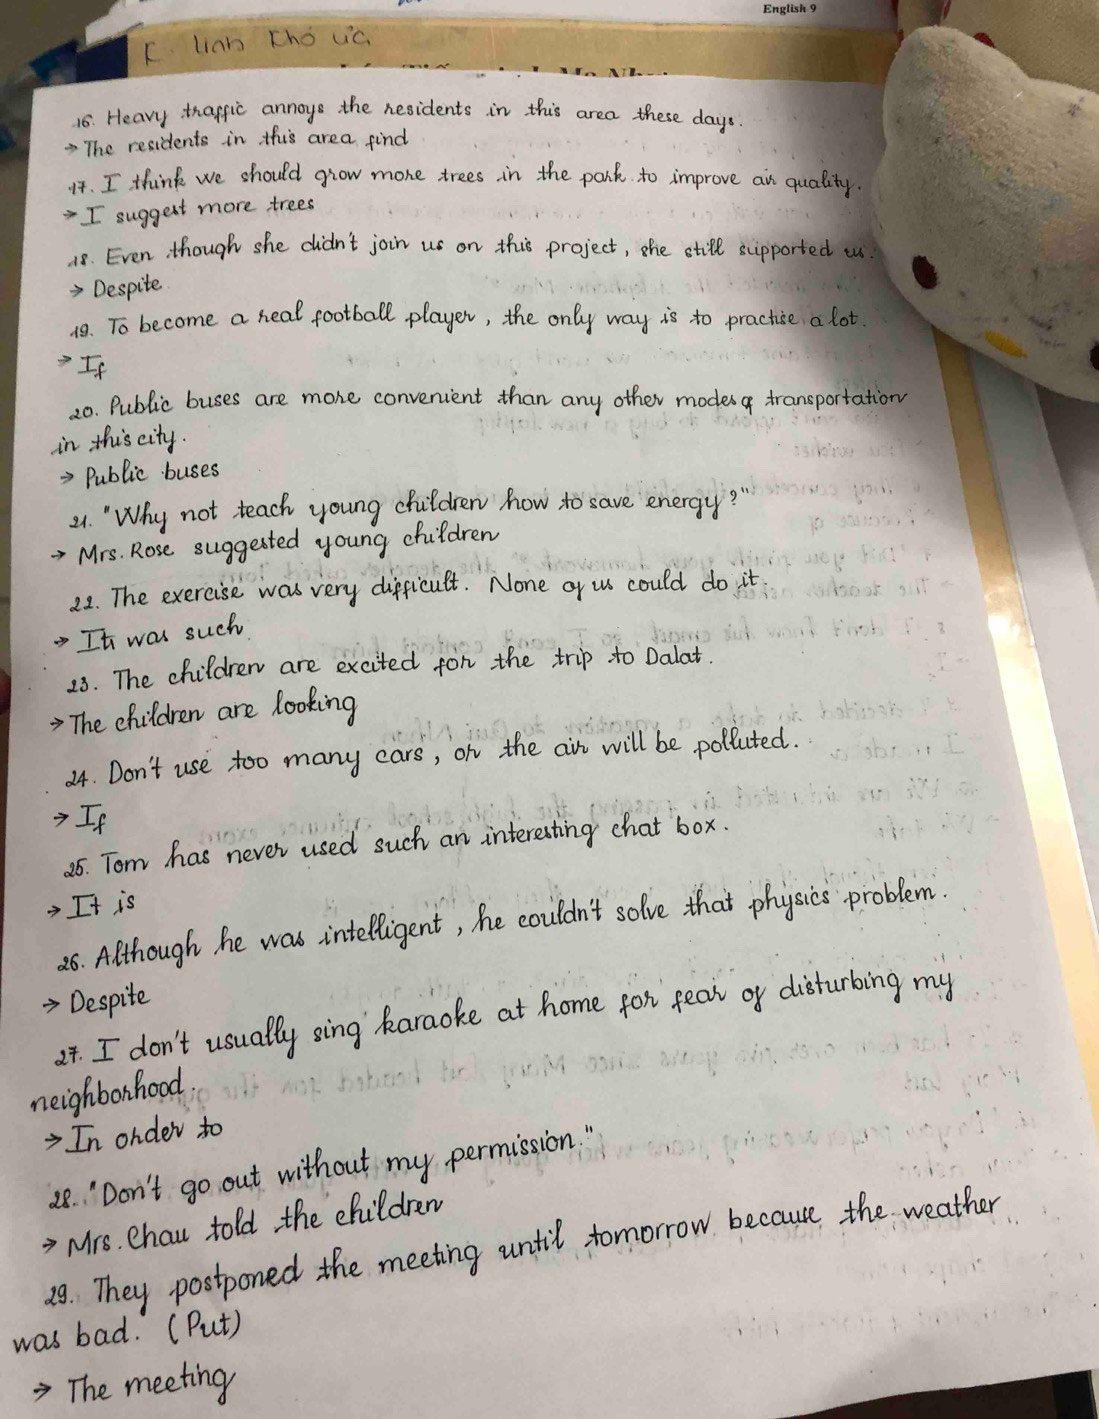 English 9
linh khó ưa
16. Heavy traffic annoys the residents in this area these days.
→ The residents in this area find
17. I think we should grow more trees in the park to improve air quality.
→ I suggest more trees
18. Even though she didn't join us on this project, she still supported us.
→ Despite
19. To become a real football player, the only way is to practise a lot.
→ If
20. Public buses are more convenient than any other modes of transportation
in this city.
→ Public buses
21. "Why not teach young children how to save energy?"
→ Mrs. Rose suggested young children
22. The exercise was very difficult. None of us could do it.
→ It was such
23. The children are excited for the trip to Dalat.
→ The children are looking
24. Don't use too many cars, or the air will be polluted.
→ If
25. Tom has never used such an interesting chat box.
→ It is
26. Although he was intelligent, he couldn't solve that physics problem.
→ Despite
27. I don't usually sing karaoke at home for fear of disturbing my
neighborhood.
→ In order to
28. "Don't go out without my permission."
→ Mrs. Chau told the children
29. They postponed the meeting until tomorrow because the weather
was bad. (Put)
→ The meeting